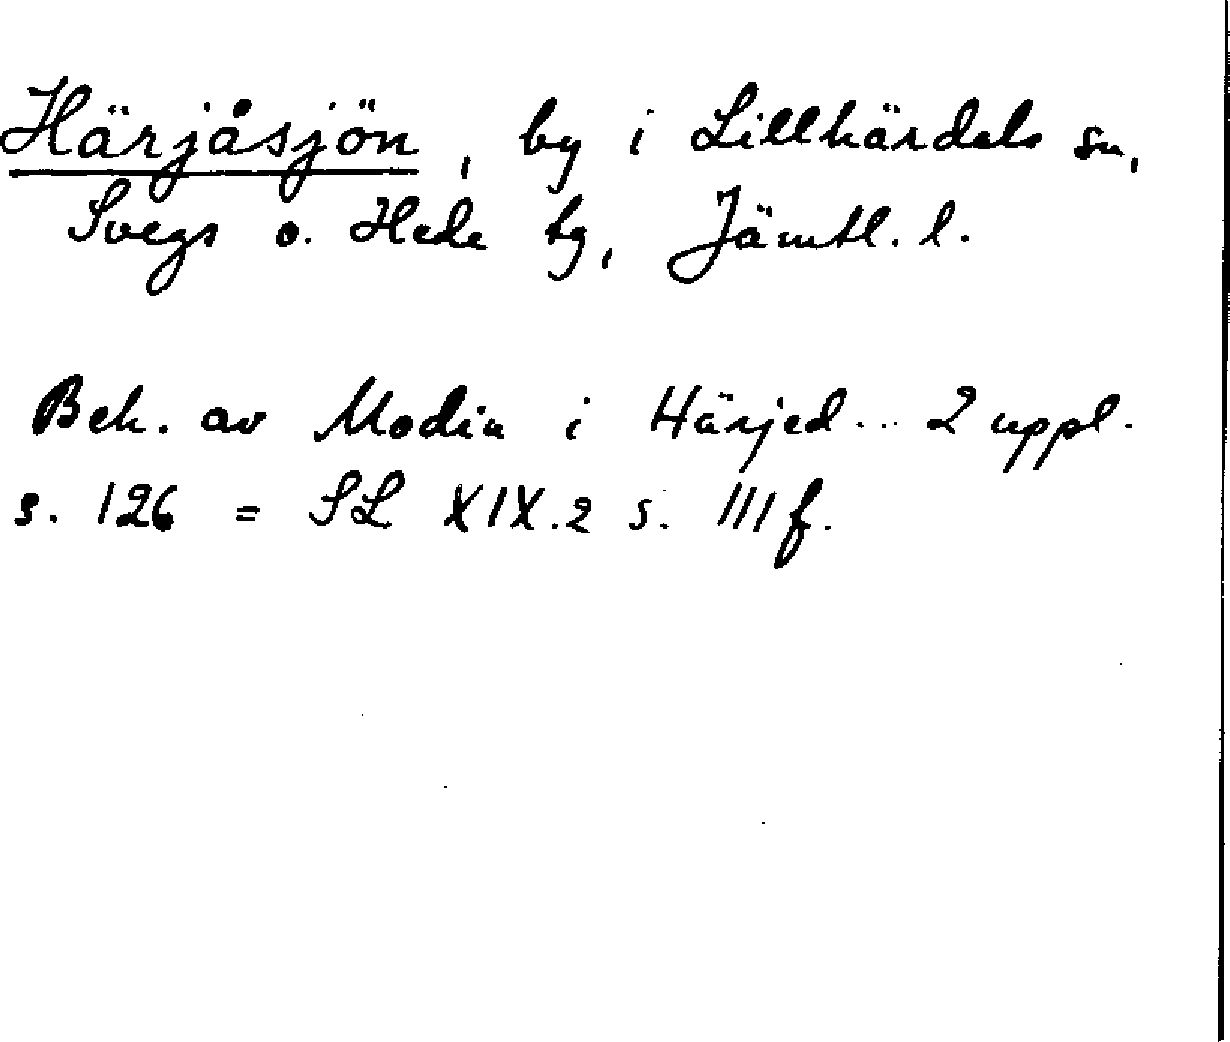 Härjåsjön, by i Lillhärdals sn,
Svegs o. Hede tg, Jämtl. l.
Beh. av Modin i Härjed... 2 uppl.
s. 126 = SL XIX.2 s. 111 f.